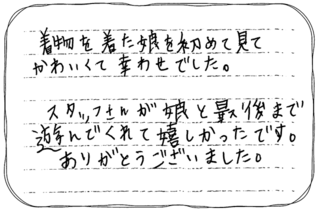 着物を着た娘を初めて見て
かわいくて幸わせでした。
スタッフさんが娘と最後まで
遊んでくれて嬉しかったです。
ありがとうございました。